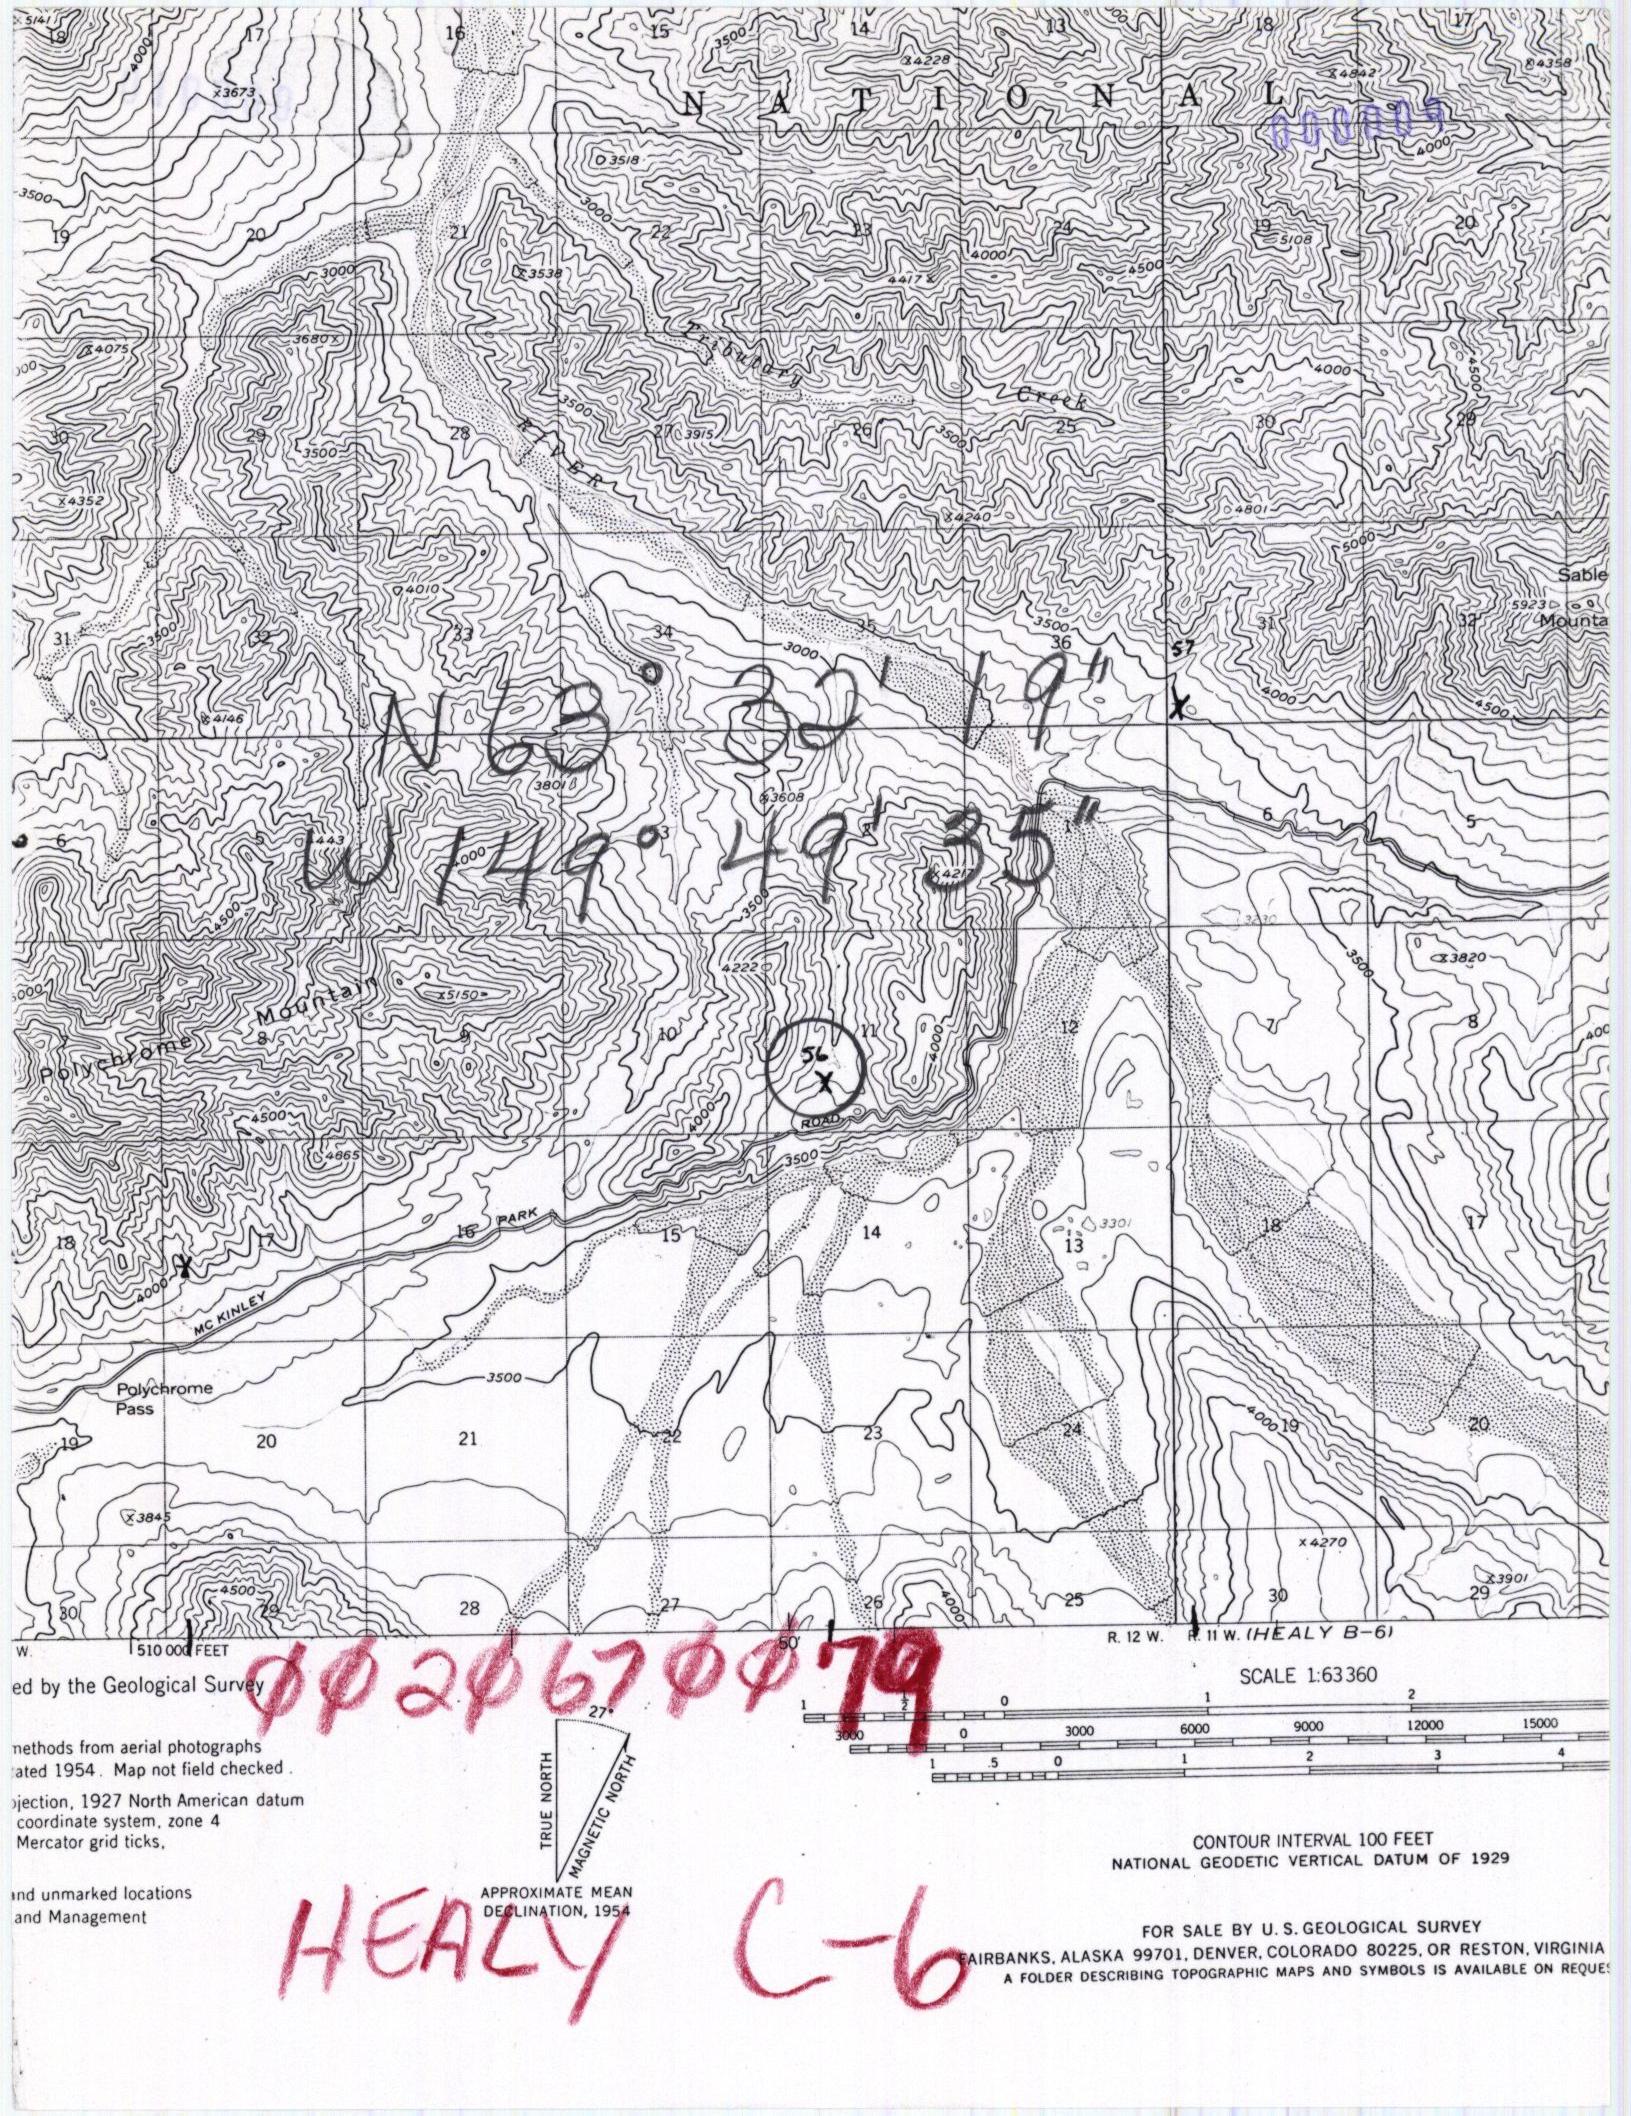 x5141
18 17 16 15 14 13 18 17
4000 3500 x4228 x4842 x4358
x3673
N A T I O N A L
000009
3518 4000
3500 3000
19 20 21 22 23 24 19 20
5108
3000 x3538 4417x 4000 4500
3680x
x4075 Tributary 4000 4500
3500 Creek
30 29 28 27 3915 26 3500 25 30 29
3500
RIVER
x4352 x4240 4801
5000
Sable
4010 5923
3500 3500 Mounta
31 32 33 34 35 36 31 32
3000 57
X
N 63° 32' 19"
4000 4500
x4146
3801 x3608
6 5 4443 3 2 1 6 5
W 149° 49' 35"
4000 x4217
3500 3230
4500
4222 3500 x3820
5000 x5150
Polychrome Mountain
7 8 9 10 11 12 7 8
56 4000 400
X
4500 4000 ROAD
4865 3500
18 17 16 PARK 15 14 13 3301 18 17
X
4000
MC KINLEY
Polychrome
Pass
3500
4000
19 20 21 22 23 24 19 20
x3845 x4270
4500 4000 x3901
30 29 28 27 26 25 30 29
W. 510 000 FEET 50' R. 12 W. R. 11 W. (HEALY B-6)
ed by the Geological Survey
0020670079
SCALE 1:63 360
1 1/2 0 1 2
3000 0 3000 6000 9000 12000 15000
1 .5 0 1 2 3 4
27°
TRUE NORTH
MAGNETIC NORTH
methods from aerial photographs
ated 1954. Map not field checked.
ojection, 1927 North American datum
coordinate system, zone 4
Mercator grid ticks,
CONTOUR INTERVAL 100 FEET
NATIONAL GEODETIC VERTICAL DATUM OF 1929
and unmarked locations
and Management
APPROXIMATE MEAN
DECLINATION, 1954
HEALY C-6
FOR SALE BY U. S. GEOLOGICAL SURVEY
FAIRBANKS, ALASKA 99701, DENVER, COLORADO 80225, OR RESTON, VIRGINIA
A FOLDER DESCRIBING TOPOGRAPHIC MAPS AND SYMBOLS IS AVAILABLE ON REQUES